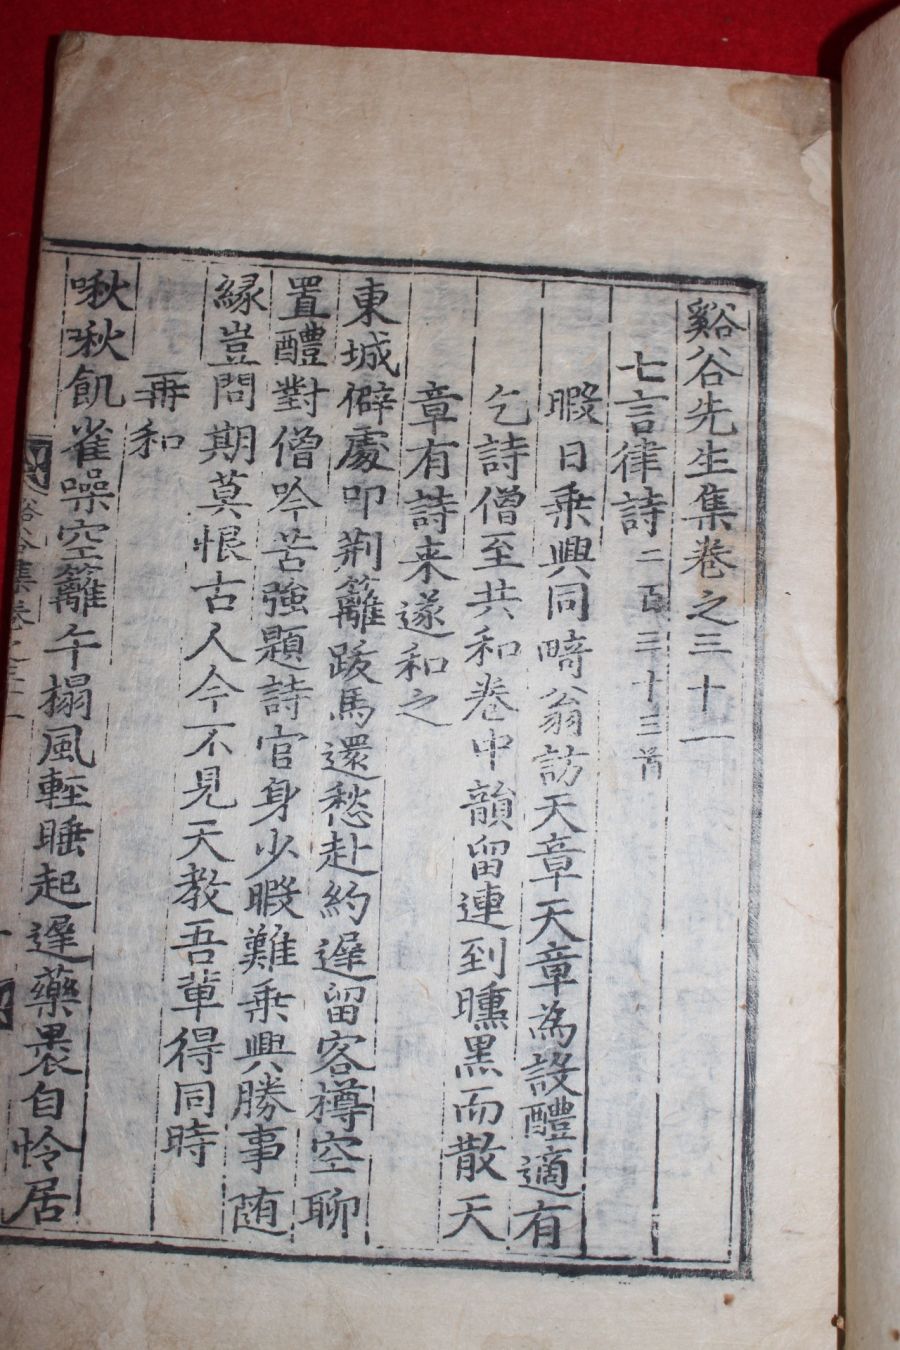 谿谷先生集卷之三十一
七言律詩二百三十三首
暇日乗興同畸翁訪天章天章為設醴適有
乞詩僧至共和卷中韻留連到曛黒而散天
章有詩来遂和之
東城僻處叩荆籬跋馬還愁赴約遲留客樽空聊
置醴對僧吟苦強題詩官身少暇難乗興勝事随
縁豈問期莫恨古人今不見天教吾輩得同時
再和
啾啾飢雀噪空籬午榻風輕睡起遲藥褁自怜居
谿谷集卷之三十一